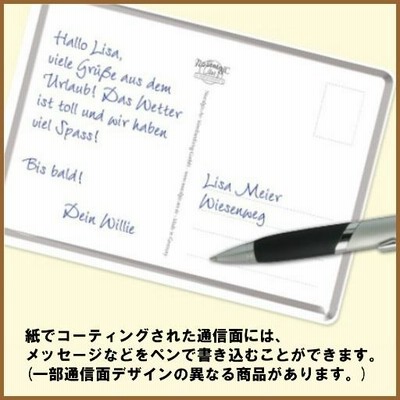 Hallo Lisa,
viele Grüße aus dem
Urlaub! Das Wetter
ist toll und wir haben
viel Spass!
Bis bald!
Dein Willie
Lisa Meier
Wiesenweg
紙でコーティングされた通信面には、
メッセージなどをペンで書き込むことができます。
(一部通信面デザインの異なる商品があります。)